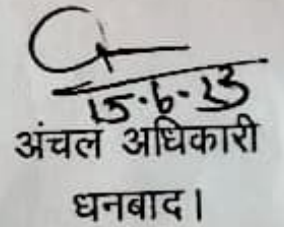 15-6-23
अंचल अधिकारी
धनबाद।